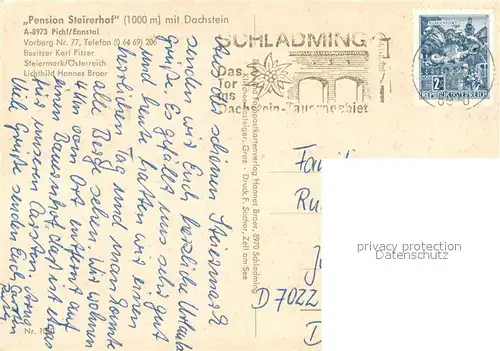 „Pension Steirerhof" (1000 m) mit Dachstein
A-8973 Pichl/Ennstal
Vorberg Nr. 77, Telefon (0 64 69) 206
Besitzer Karl Pitzer
Steiermark/Österreich
Lichtbild Hannes Broer
SCHLADMING
Das
Tor
ins
Dachstein-Tauerngebiet
2S
REPUBLIK ÖSTERREICH
Aus der schönen Steiermark
senden wir Euch herzliche Urlaubs
grüße. Es gefällt uns sehr gut
und heute hatten wir einen
herrlichen Tag und man konnte
alle Berge sehen. Wir wohnen
4 km vom Ort entfernt auf
einem Bauernhof, das ist etwas
für unseren Carsten.
Viele Grüße senden Euch
Postkartenverlag Hannes Broer, 8970 Schladming
Graz · Druck F. Sochor, Zell am See
Fami
D 7022
D
Nr. 10
privacy protection
www.delcampe.net